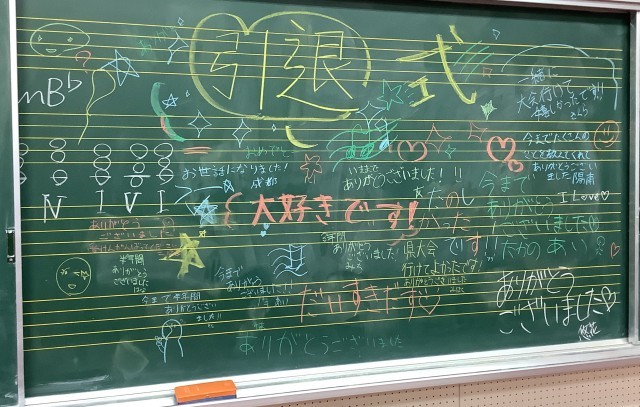 引退式
mB♭
Ⅳ Ⅰ Ⅴ Ⅰ
お世話になりました!
成都
いままで
ありがとうございました!!
大好きです!!
たのし
かった
です!!
一緒に
大会行けて
嬉しかったです!!
さくら
今までたくさんの
ことを教えてくれて
ありがとうござい
ました 陽南
今まで
ありがとう
ございました
I Love♡
ありがとう
ございました
半年間
ありがとう
ございました
今まで半年間
ありがとうござい
ました!!
今まで
ありがとう
ございました!!
半年間
ありがとう
ございました!
県大会
行けてよかったです!
ありがとうございました
だいすきです♡
ありがとうございました
ありがとう
ございました♡
悠花